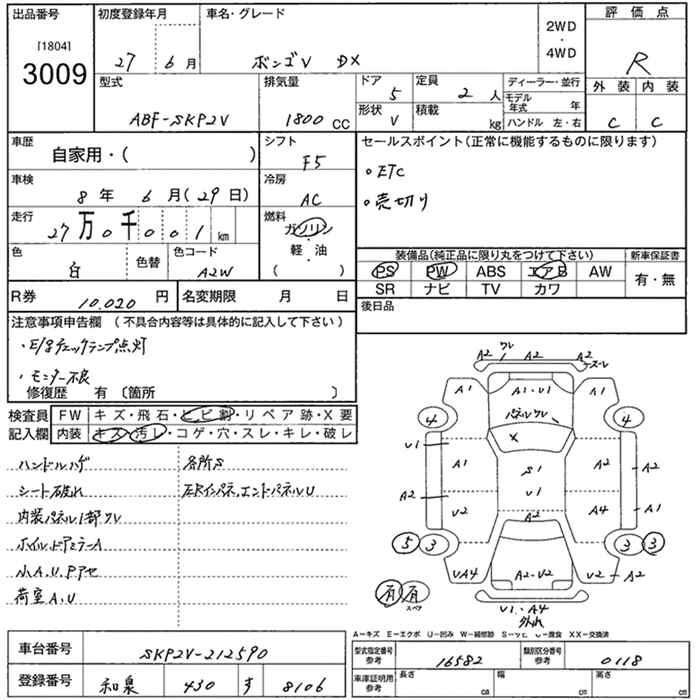 出品番号 初度登録年月 車名・グレード 2WD・4WD 評価点
[1804]
3009
27 6月 ボンゴV DX R
型式 排気量 ドア 5 定員 2人 ディーラー・並行 外装 内装
ABF-SKP2V 1800 CC 形状 V 積載 kg モデル年式 年 C C
ハンドル 左・右
車歴 自家用・( ) シフト F5 セールスポイント(正常に機能するものに限ります)
車検 8年 6月(29日) 冷房 AC 。ETC
。売切り
走行 27万0千001km 燃料 ガソリン・軽・油 ( )
色 白 色替 色コード A2W
装備品(純正品に限り丸をつけて下さい) 新車保証書
PS PW ABS エアB AW 有・無
SR ナビ TV カワ
R券 10.020円 名変期限 月 日 後日品
注意事項申告欄(不具合内容等は具体的に記入して下さい)
・E/gチェックランプ点灯
・モニター不良
修復歴 有 〔箇所 〕
検査員記入欄 FW キズ・飛石・ヒビ割・リペア跡・X要
内装 キズ・汚レ・コゲ・穴・スレ・キレ・破レ
ハンドルハゲ 各所S
シート破れ 左Rインパネ,エンドパネルU
内装パネル1部ワレ
ホイル,ドアミラーA
小A.U.Pアセ
荷室A.U
A2 ワレ A2 A2 スーレ
A1 A1・U1 A1
パネルワレ
4 X 4
U1 A1 S1 A2
A2 U1 A1
U2 A2 A4
5 3 3 3
UA4 A2・U2 U2 A2
有 有 スペア
U1・A4
外れ
A-キズ E-エクボ U-凹み W-補修跡 S-サビ C-腐食 XX-交換済
車台番号 SKP2V-212590
登録番号 和泉 430 す 8106
型式指定番号 参考 16582 類別区分番号 参考 0118
車庫証明用 参考 長さ cm 幅 cm 高さ cm